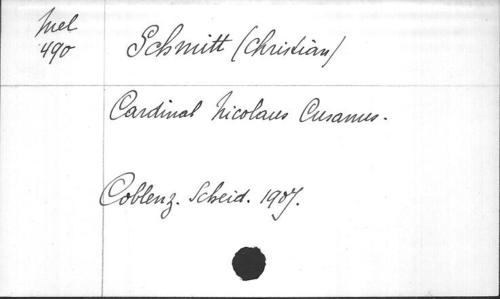 Mel
490
Schmitt (Christian)
Cardinal Nicolaus Cusanus.
Coblenz. Scheid. 1907.